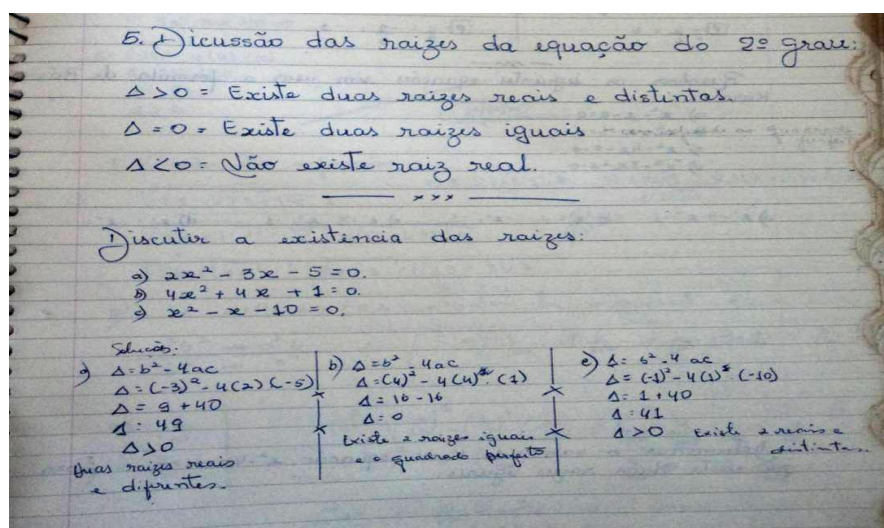 5. Dicussão das raizes da equação do 2º grau:
Δ > 0 = Existe duas raizes reais e distintas.
Δ = 0 = Existe duas raizes iguais
Δ < 0 = Não existe raiz real.
xxx
Discutir a existência das raizes:
a) 2x² - 3x - 5 = 0.
b) 4x² + 4x + 1 = 0.
c) x² - x - 10 = 0.
Solução:
a) Δ = b² - 4ac
Δ = (-3)² - 4(2)(-5)
Δ = 9 + 40
Δ = 49
Δ > 0
Duas raizes reais
e diferentes.
b) Δ = b² - 4ac
Δ = (4)² - 4(4)·(1)
Δ = 16 - 16
Δ = 0
Existe 2 raizes iguais
e o quadrado perfeito
c) Δ = b² - 4ac
Δ = (-1)² - 4(1)(-10)
Δ = 1 + 40
Δ = 41
Δ > 0 Existe 2 reais e
distintas.